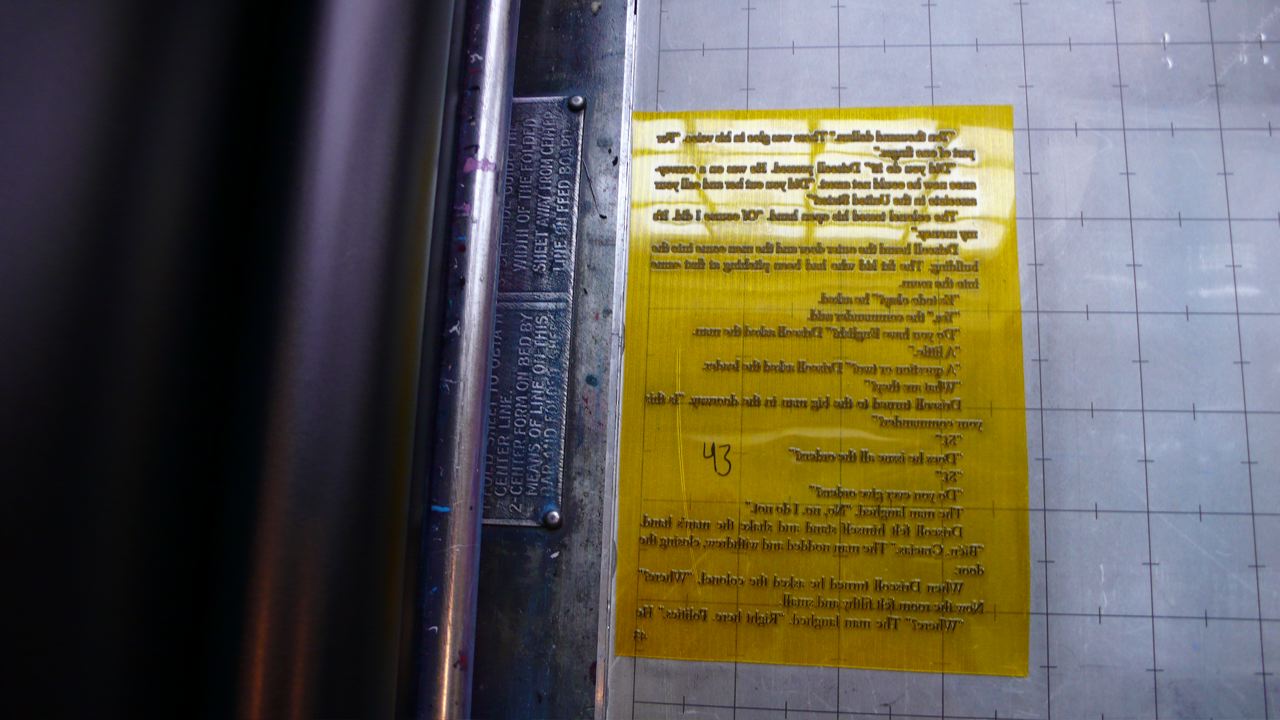 "Ten thousand dollars." There was glee in his voice. "For
part of one finger."
"Did you do it?" Driscoll paused. He was on a money
once now he could not count. "Did you cut her and call your
associate in the United States?"
The colonel turned his open hand. "Of course I did. It's
my money."
Driscoll heard the outer door and the man came into the
building. The fat kid who had been pitching at first came
into the room.
"Es todo okay?" he asked.
"Yes," the commander said.
"Do you have English?" Driscoll asked the man.
"A little."
"A question or two?" Driscoll asked the leader.
"What are they?"
Driscoll turned to the big man in the doorway. "Is this
your commander?"
"Sí."
"Does he issue all the orders?"
"Sí."
"Do you ever give orders?"
The man laughed. "No, no. I do not."
Driscoll felt himself stand and shake the man's hand.
"Bien. Gracias." The man nodded and withdrew, closing the
door.
When Driscoll turned he asked the colonel, "Where?"
Now the room felt filthy and small.
"Where?" The man laughed. "Right here. Politics." He
43
43
WIDTH OF THE FOLDED
SHEET AWAY FROM CENTER
LINE ON FEED BOARD
CENTER LINE.
2-CENTER FORM ON BED BY
MEANS OF LINE ON THIS
BAR AND